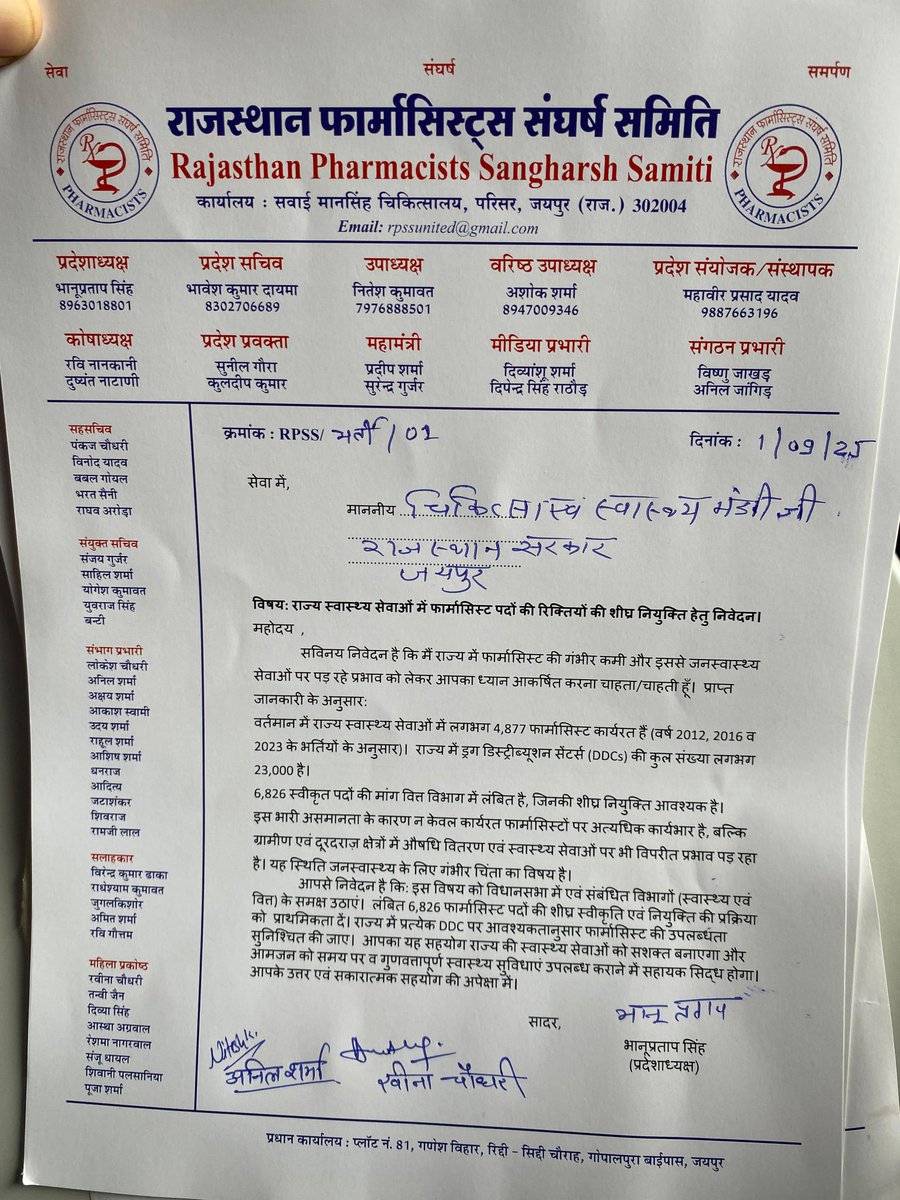 सेवा
संघर्ष
समर्पण
राजस्थान फार्मासिस्ट्स संघर्ष समिति
Rajasthan Pharmacists Sangharsh Samiti
कार्यालय : सवाई मानसिंह चिकित्सालय, परिसर, जयपुर (राज.) 302004
Email: rpssunited@gmail.com
राजस्थान फार्मासिस्ट्स संघर्ष समिति
PHARMACISTS
राजस्थान फार्मासिस्ट्स संघर्ष समिति
PHARMACISTS
प्रदेशाध्यक्ष
भानूप्रताप सिंह
8963018801
प्रदेश सचिव
भावेश कुमार दायमा
8302706689
उपाध्यक्ष
नितेश कुमावत
7976888501
वरिष्ठ उपाध्यक्ष
अशोक शर्मा
8947009346
प्रदेश संयोजक/संस्थापक
महावीर प्रसाद यादव
9887663196
कोषाध्यक्ष
रवि नानकानी
दुष्यंत नाटाणी
प्रदेश प्रवक्ता
सुनील गौरा
कुलदीप कुमार
महामंत्री
प्रदीप शर्मा
सुरेन्द्र गुर्जर
मीडिया प्रभारी
दिव्यांशू शर्मा
दिपेन्द्र सिंह राठौड़
संगठन प्रभारी
विष्णु जाखड़
अनिल जांगिड़
सहसचिव
पंकज चौधरी
विनोद यादव
बबल गोयल
भरत सैनी
राघव अरोड़ा
संयुक्त सचिव
संजय गुर्जर
साहिल शर्मा
योगेश कुमावत
युवराज सिंह
बन्टी
संभाग प्रभारी
लोकेश चौधरी
अनिल शर्मा
अक्षय शर्मा
आकाश स्वामी
उदय शर्मा
राहूल शर्मा
आशिष शर्मा
धनराज
आदित्य
जटाशंकर
शिवराज
रामजी लाल
सलाहकार
विरेन्द्र कुमार ढाका
राधेश्याम कुमावत
जुगलकिशोर
अमित शर्मा
रवि गौत्तम
महिला प्रकोष्ठ
रवीना चौधरी
तन्वी जैन
दिव्या सिंह
आस्था अग्रवाल
रेशमा नागरवाल
संजू धायल
शिवानी पलसानिया
पूजा शर्मा
क्रमांक : RPSS/ भर्ती / 01
दिनांक : 1/09/25
सेवा में,
माननीय चिकित्सा एवं स्वास्थ्य मंत्री जी
राजस्थान सरकार
जयपुर
विषय: राज्य स्वास्थ्य सेवाओं में फार्मासिस्ट पदों की रिक्तियों की शीघ्र नियुक्ति हेतु निवेदन।
महोदय ,
सविनय निवेदन है कि मैं राज्य में फार्मासिस्ट की गंभीर कमी और इससे जनस्वास्थ्य
सेवाओं पर पड़ रहे प्रभाव को लेकर आपका ध्यान आकर्षित करना चाहता/चाहती हूँ। प्राप्त
जानकारी के अनुसार:
वर्तमान में राज्य स्वास्थ्य सेवाओं में लगभग 4,877 फार्मासिस्ट कार्यरत हैं (वर्ष 2012, 2016 व
2023 के भर्तियों के अनुसार)। राज्य में ड्रग डिस्ट्रीब्यूशन सेंटर्स (DDCs) की कुल संख्या लगभग
23,000 है।
6,826 स्वीकृत पदों की मांग वित्त विभाग में लंबित है, जिनकी शीघ्र नियुक्ति आवश्यक है।
इस भारी असमानता के कारण न केवल कार्यरत फार्मासिस्टों पर अत्यधिक कार्यभार है, बल्कि
ग्रामीण एवं दूरदराज़ क्षेत्रों में औषधि वितरण एवं स्वास्थ्य सेवाओं पर भी विपरीत प्रभाव पड़ रहा
है। यह स्थिति जनस्वास्थ्य के लिए गंभीर चिंता का विषय है।
आपसे निवेदन है कि: इस विषय को विधानसभा में एवं संबंधित विभागों (स्वास्थ्य एवं
वित्त) के समक्ष उठाएं। लंबित 6,826 फार्मासिस्ट पदों की शीघ्र स्वीकृति एवं नियुक्ति की प्रक्रिया
को प्राथमिकता दें। राज्य में प्रत्येक DDC पर आवश्यकतानुसार फार्मासिस्ट की उपलब्धता
सुनिश्चित की जाए। आपका यह सहयोग राज्य की स्वास्थ्य सेवाओं को सशक्त बनाएगा और
आमजन को समय पर व गुणवत्तापूर्ण स्वास्थ्य सुविधाएं उपलब्ध कराने में सहायक सिद्ध होगा।
आपके उत्तर एवं सकारात्मक सहयोग की अपेक्षा में।
सादर,
भानू प्रताप
भानूप्रताप सिंह
(प्रदेशाध्यक्ष)
अनिल शर्मा
रवीना चौधरी
प्रधान कार्यालय : प्लॉट नं. 81, गणेश विहार, रिद्दी - सिद्दी चौराह, गोपालपुरा बाईपास, जयपुर